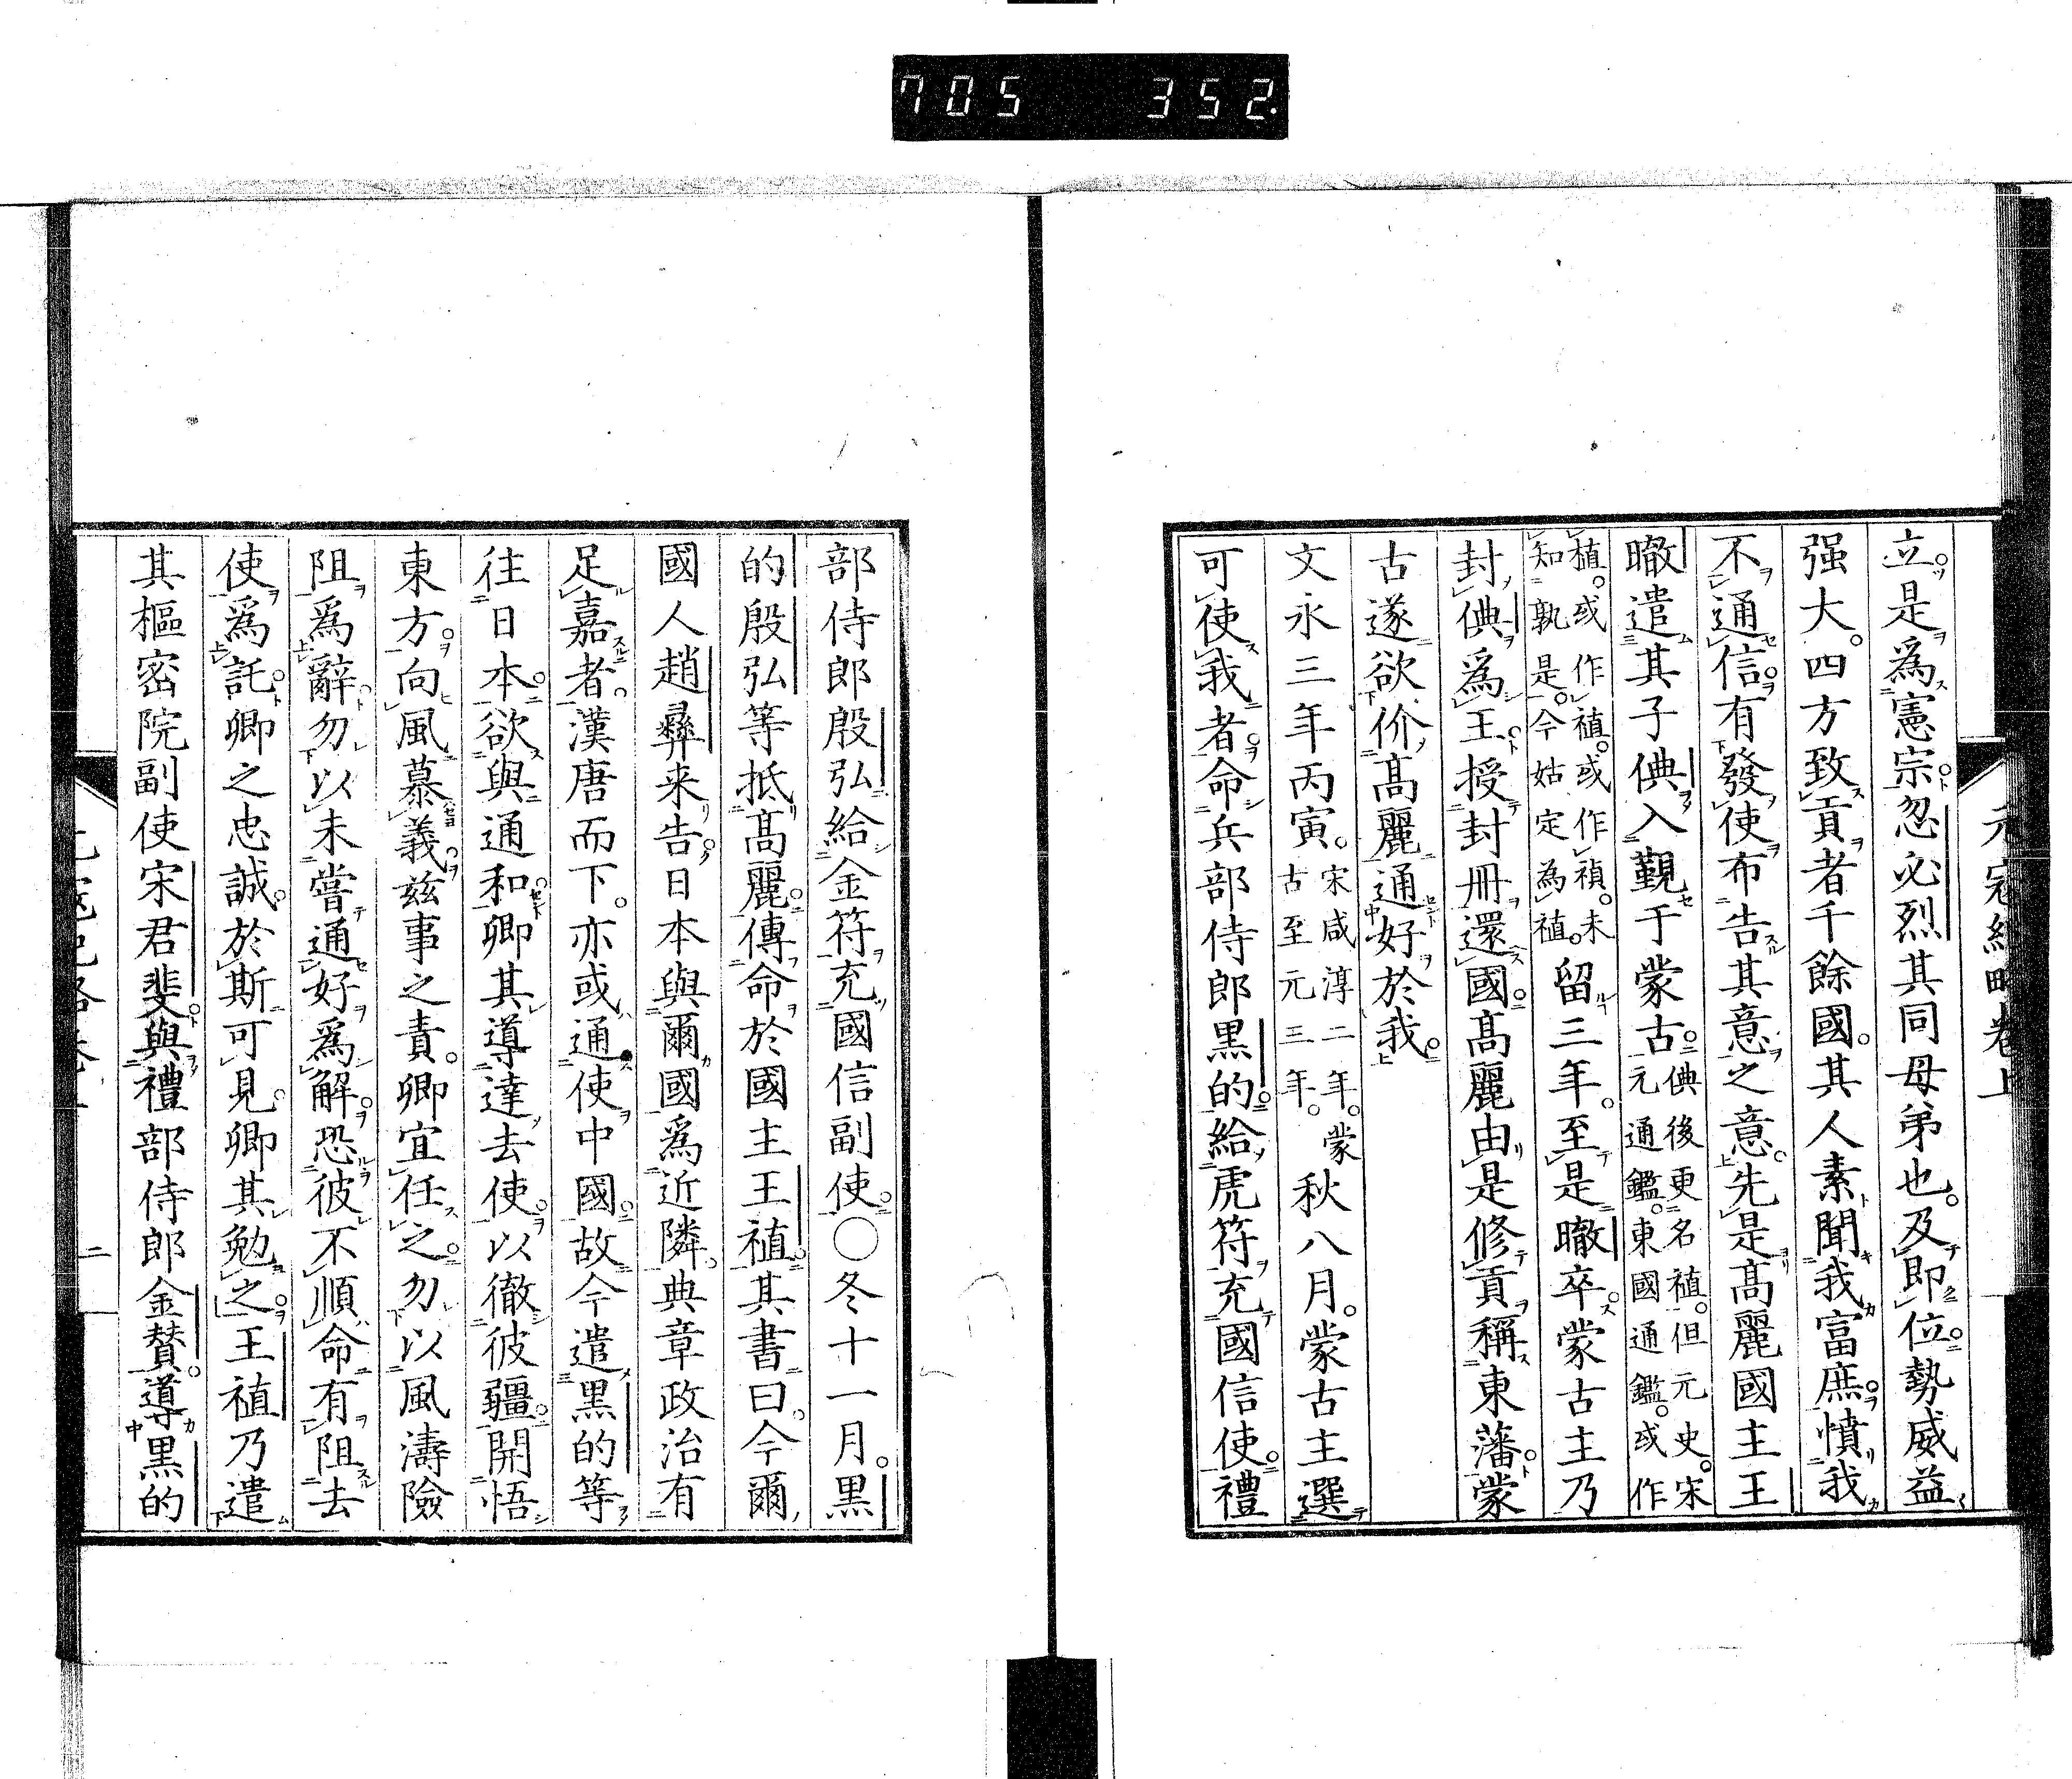 705 352
元寇紀略卷上
立。是爲憲宗。忽必烈其同母弟也。及即位。勢威益
强大。四方致貢者千餘國。其人素聞我富庶。憤我
不通信。有發使布告其意之意。先是高麗國主王
㬚遣其子倎入覲于蒙古。倎後更名禃。但元史。宋元通鑑。東國通鑑。或作
植。或作禃。或作禎。未知孰是。今姑定為禃。留三年。至是㬚卒。蒙古主乃
封倎爲王。授封冊還國。高麗由是修貢稱東藩。蒙
古遂欲价高麗通好於我。
文永三年丙寅。宋咸淳二年。蒙古至元三年。秋八月。蒙古主選
可使我者。命兵部侍郎黒的。給虎符充國信使。禮
部侍郎殷弘給金符充國信副使。〇冬十一月。黒
的殷弘等抵高麗。傳命於國主王禃。其書曰。今爾
國人趙彝来告。日本與爾國爲近隣。典章政治有
足嘉者。漢唐而下。亦或通使中國。故今遣黒的等
往日本。欲與通和。卿其導達去使。以徹彼疆。開悟
東方。向風慕義。兹事之責。卿宜任之。勿以風濤險
阻爲辭。勿以未嘗通好爲解。恐彼不順命有阻去
使爲託。卿之忠誠。於斯可見。卿其勉之。王禃乃遣
其樞密院副使宋君斐。與禮部侍郎金賛。導黒的
二